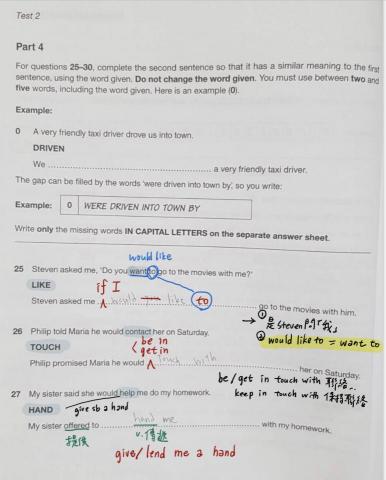 Test 2
Part 4
For questions 25-30, complete the second sentence so that it has a similar meaning to the first
sentence, using the word given. Do not change the word given. You must use between two and
five words, including the word given. Here is an example (0).
Example:
0 A very friendly taxi driver drove us into town.
DRIVEN
We ........................................ a very friendly taxi driver.
The gap can be filled by the words 'were driven into town by', so you write:
Example: 0 WERE DRIVEN INTO TOWN BY
Write only the missing words IN CAPITAL LETTERS on the separate answer sheet.
would like
25 Steven asked me, 'Do you want to go to the movies with me?'
LIKE
if I
Steven asked me would like to go to the movies with him.
① 是Steven問「我」
② would like to = want to
26 Philip told Maria he would contact her on Saturday.
TOUCH
be in
get in
Philip promised Maria he would touch with her on Saturday.
be/get in touch with 聯絡
keep in touch with 保持聯絡
27 My sister said she would help me do my homework.
HAND
give sb a hand
My sister offered to hand me with my homework.
v. 傳遞
give/lend me a hand